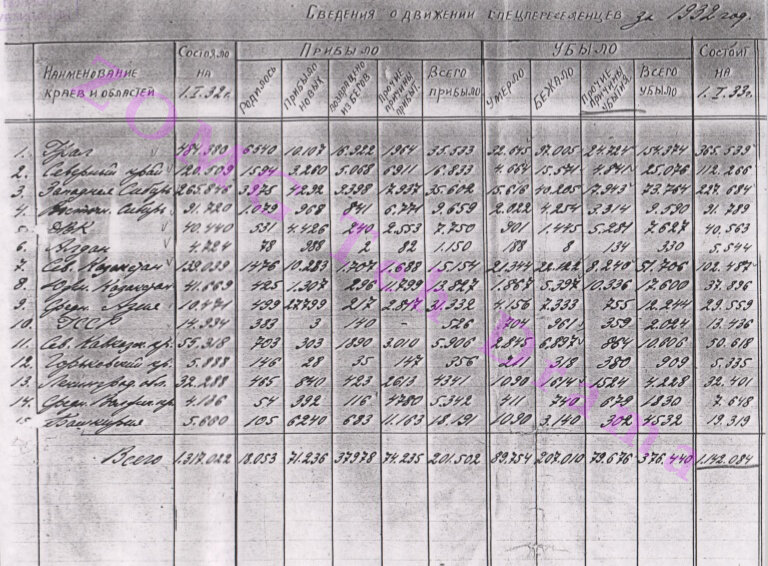 Сведения о движении спецпереселенцев за 1932 год.
Наименование краев и областей Состояло на 1.I.32 г. Прибыло Убыло Состоит на 1.I.33 г.
Родилось Прибыло новых Возвращено из бегов Прочие причины прибыт. Всего прибыло Умерло Бежало Прочие причины убытия Всего убыло
1. Урал 484.380 6540 10.107 16.922 1964 35.533 32.645 97.005 24.724 154.374 365.539
2. Северный край 120.509 1594 3.260 5.068 6911 16.833 4.664 15.571 4.841 25.076 112.266
3. Западная Сибирь 265.846 3.975 9398 17.937 35.602 15.616 40.205 17.943 73.764 227.684
4. Восточн. Сибирь 91.720 1.079 968 841 6.771 9.659 2.022 4.254 3.314 9.590 91.789
5. ДВК 40.440 531 4.426 240 2.553 7.750 901 1.445 5.281 7.627 40.563
6. Алдан 4.724 78 988 2 82 1.150 188 8 134 330 5.544
7. Сев. Казахстан 1476 10.283 1.707 1.688 15.154 21.344 22.122 8.240 51.706 102.487
8. Южн. Казахстан 41.669 425 1.307 296 11.799 13.827 1.867 5.397 10.336 17.600 37.896
9. Средн. Азия 10.471 499 27.799 217 2.817 31.332 4.156 7.333 755 12.244 29.559
10. 14.934 383 3 140 - 526 704 961 359 2.024 13.436
11. Сев. Кавказск. кр. 55.318 703 303 1890 3.010 5.906 2.845 6.897 864 10.606 50.618
12. Горьковский кр. 5.888 146 28 35 147 356 211 318 380 909 5.335
13. Ленинград. обл. 32.288 465 840 423 2613 4341 1090 1614 1524 4.228 32.401
14. Средн. Волжск. кр. 4.136 54 392 116 4780 5.342 411 740 679 1830 7.648
15. Башкирия 5.660 105 6240 683 11.163 18.191 1090 3.140 302 4532 19.319
Всего 1.317.022 18.053 71.236 37978 74.235 201.502 89.754 207.010 79.676 376.440 1.142.084
ZOMG Teh Drama